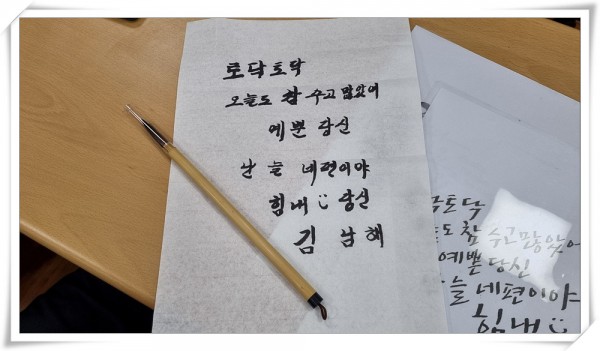 토닥토닥
오늘도 참 수고 많았어
예쁜 당신
난 늘 네편이야
힘내 당신
김남해
토닥
도 참 수고많았어
예쁜당신
늘 네편이야
힘내